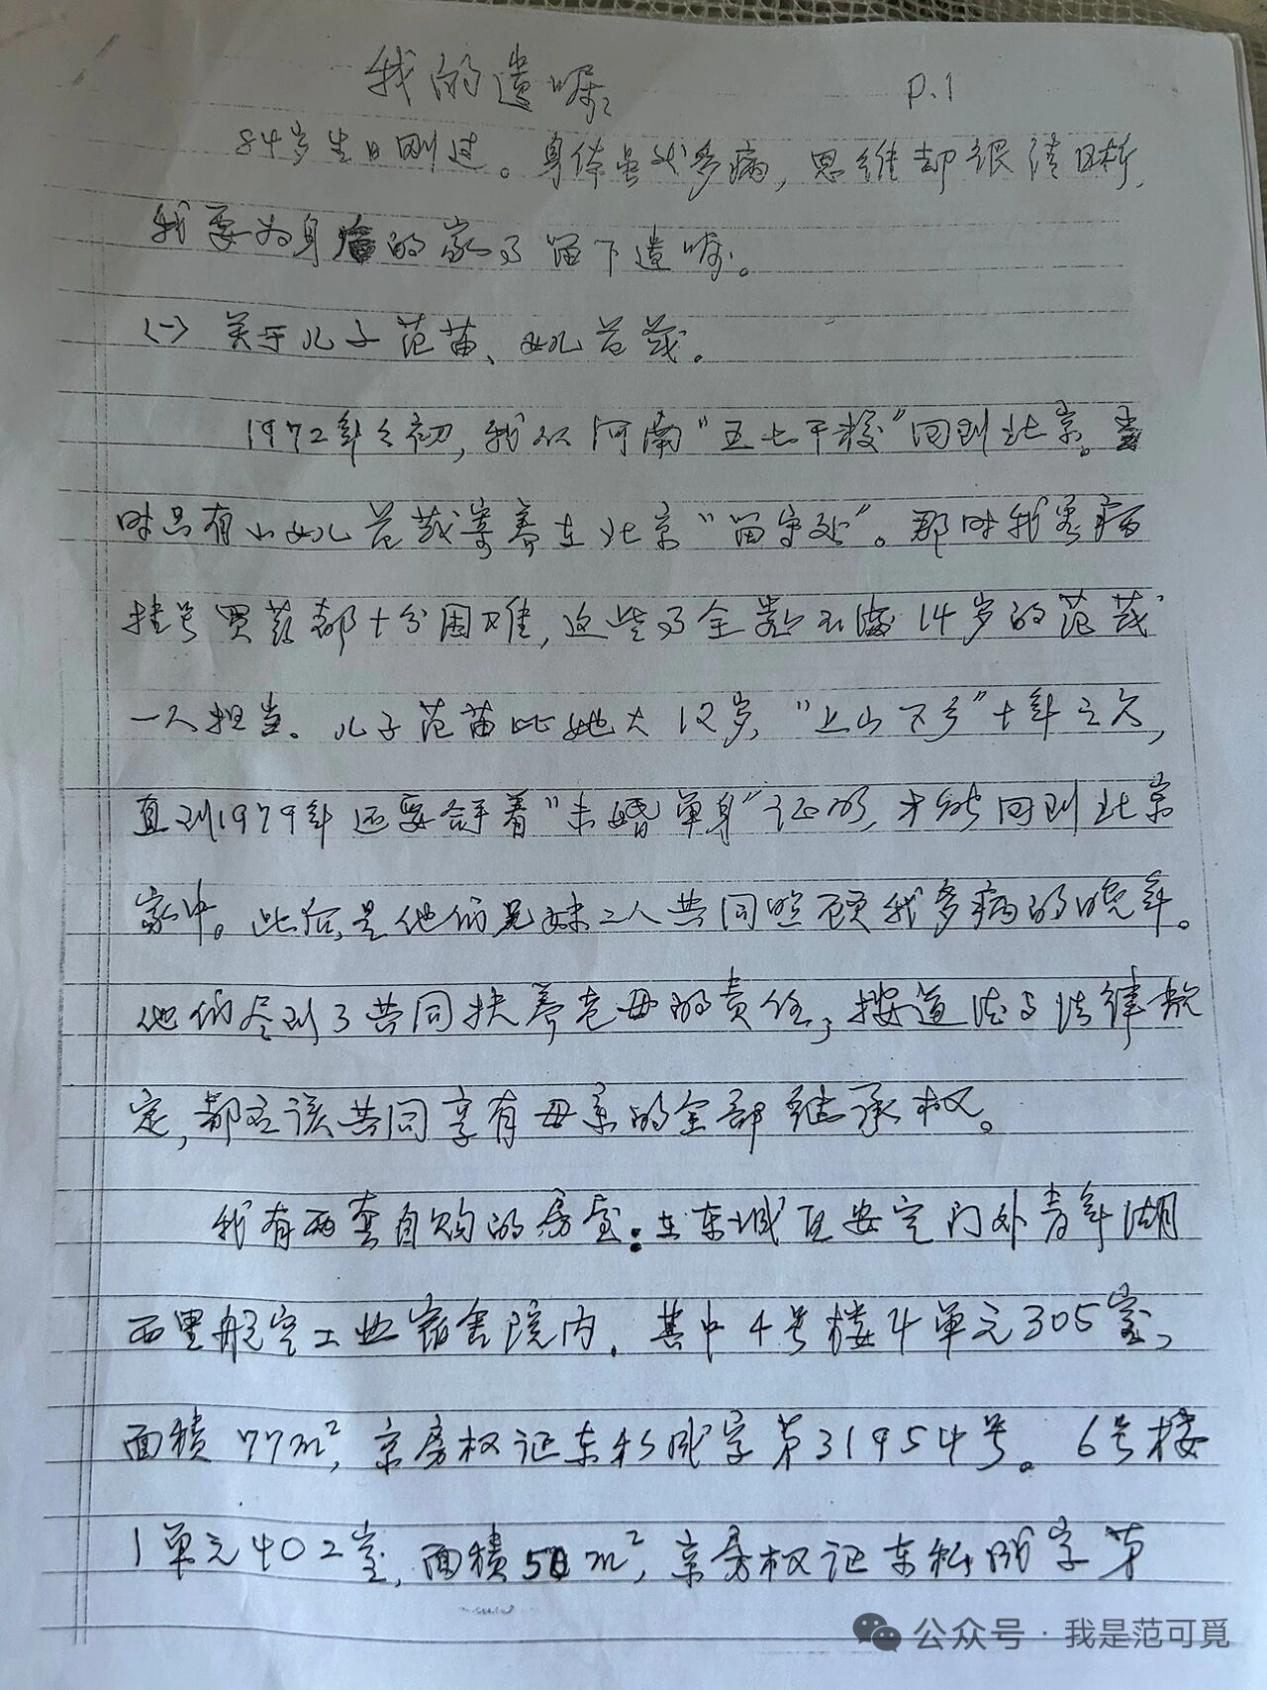 我的遗嘱
P.1
84岁生日刚过。身体虽然多病，思维却很清晰，
我要为身后的家事留下遗嘱。
〈一〉关于儿子范苗、女儿范哉。
1972年之初，我从河南“五七干校”回到北京。当
时只有小女儿范哉寄养在北京“留守处”。那时我看病
挂号买药都十分困难，这些事全数不满14岁的范哉
一人担当。儿子范苗比她大12岁，“上山下乡”十年之久，
直到1979年还要拿着“未婚单身”证明，才能回到北京
家中。此后，是他们兄妹二人共同照顾我多病的晚年。
他们尽到了共同扶养老母的责任，按道德与法律规
定，都应该共同享有母亲的全部继承权。
我有两套自购的房屋：在东城区安定门外青年湖
西里航空工业宿舍院内。其中4号楼4单元305室，
面积77m²，京房权证东私成字第31954号。6号楼
1单元402室，面积50m²，京房权证东私成字第
公众号·我是范可觅